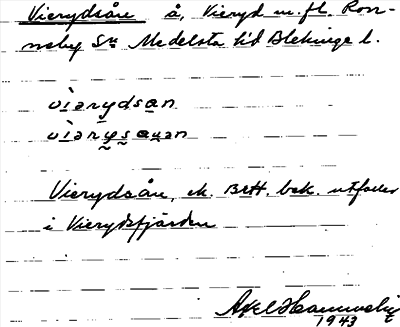 Vierydsån å, Vieryd m.fl. Ron-
neby Sn Medelsta hd Blekinge l.
vìərydsan
vìərysauən
Vierydsån, ek. Brtt. bek. utfaller
i Vierydsfjärden
Axel
1943